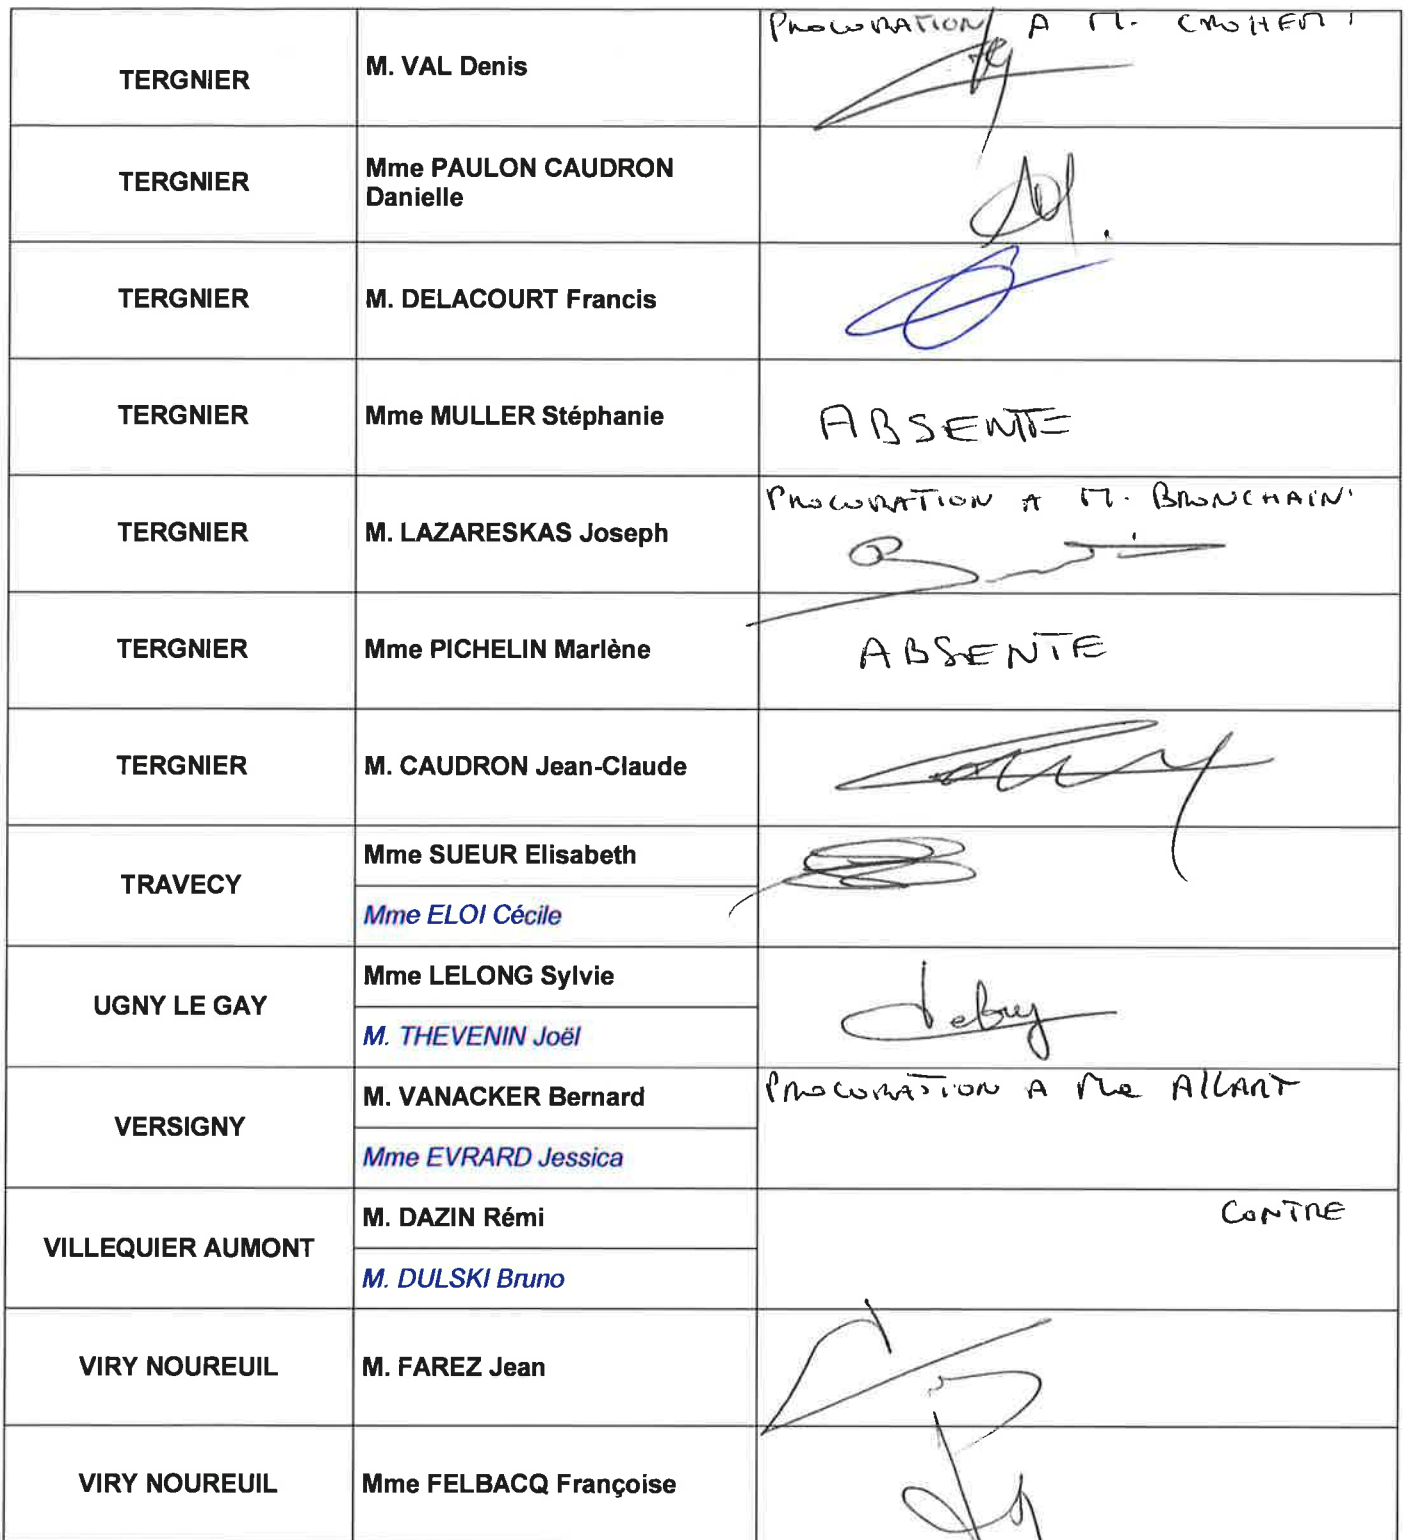 PROCURATION A M. CROHEM
TERGNIER
M. VAL Denis
TERGNIER
Mme PAULON CAUDRON
Danielle
TERGNIER
M. DELACOURT Francis
TERGNIER
Mme MULLER Stéphanie
ABSENTE
PROCURATION A M. BRONCHAIN
TERGNIER
M. LAZARESKAS Joseph
TERGNIER
Mme PICHELIN Marlène
ABSENTE
TERGNIER
M. CAUDRON Jean-Claude
TRAVECY
Mme SUEUR Elisabeth
Mme ELOI Cécile
UGNY LE GAY
Mme LELONG Sylvie
M. THEVENIN Joël
VERSIGNY
M. VANACKER Bernard
PROCURATION A Me ALLART
Mme EVRARD Jessica
VILLEQUIER AUMONT
M. DAZIN Rémi
CONTRE
M. DULSKI Bruno
VIRY NOUREUIL
M. FAREZ Jean
VIRY NOUREUIL
Mme FELBACQ Françoise